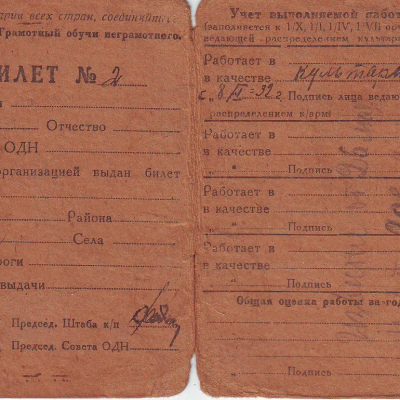 арии всех стран, соединяйт
Грамотный обучи неграмотного.
ИЛЕТ № 2
Отчество
ОДН
организацией выдан билет
Района
Села
роги
выдачи
Председ. Штаба к/п
Председ. Совета ОДН
Учет выполняемой работ
(заполняется к 1/X, 1/I, 1/IV, 1/VII ор
ведающей распределением культар
Работает в
в качестве культарм
с 8/II-32 г Подпись лица ведаю
распределением к/арм
Работает в
в качестве
„ Подпись
Работает в
в качестве
„ Подпись
Работает в
в качестве
„ Подпись
Общая оценка работы за год
Подпись